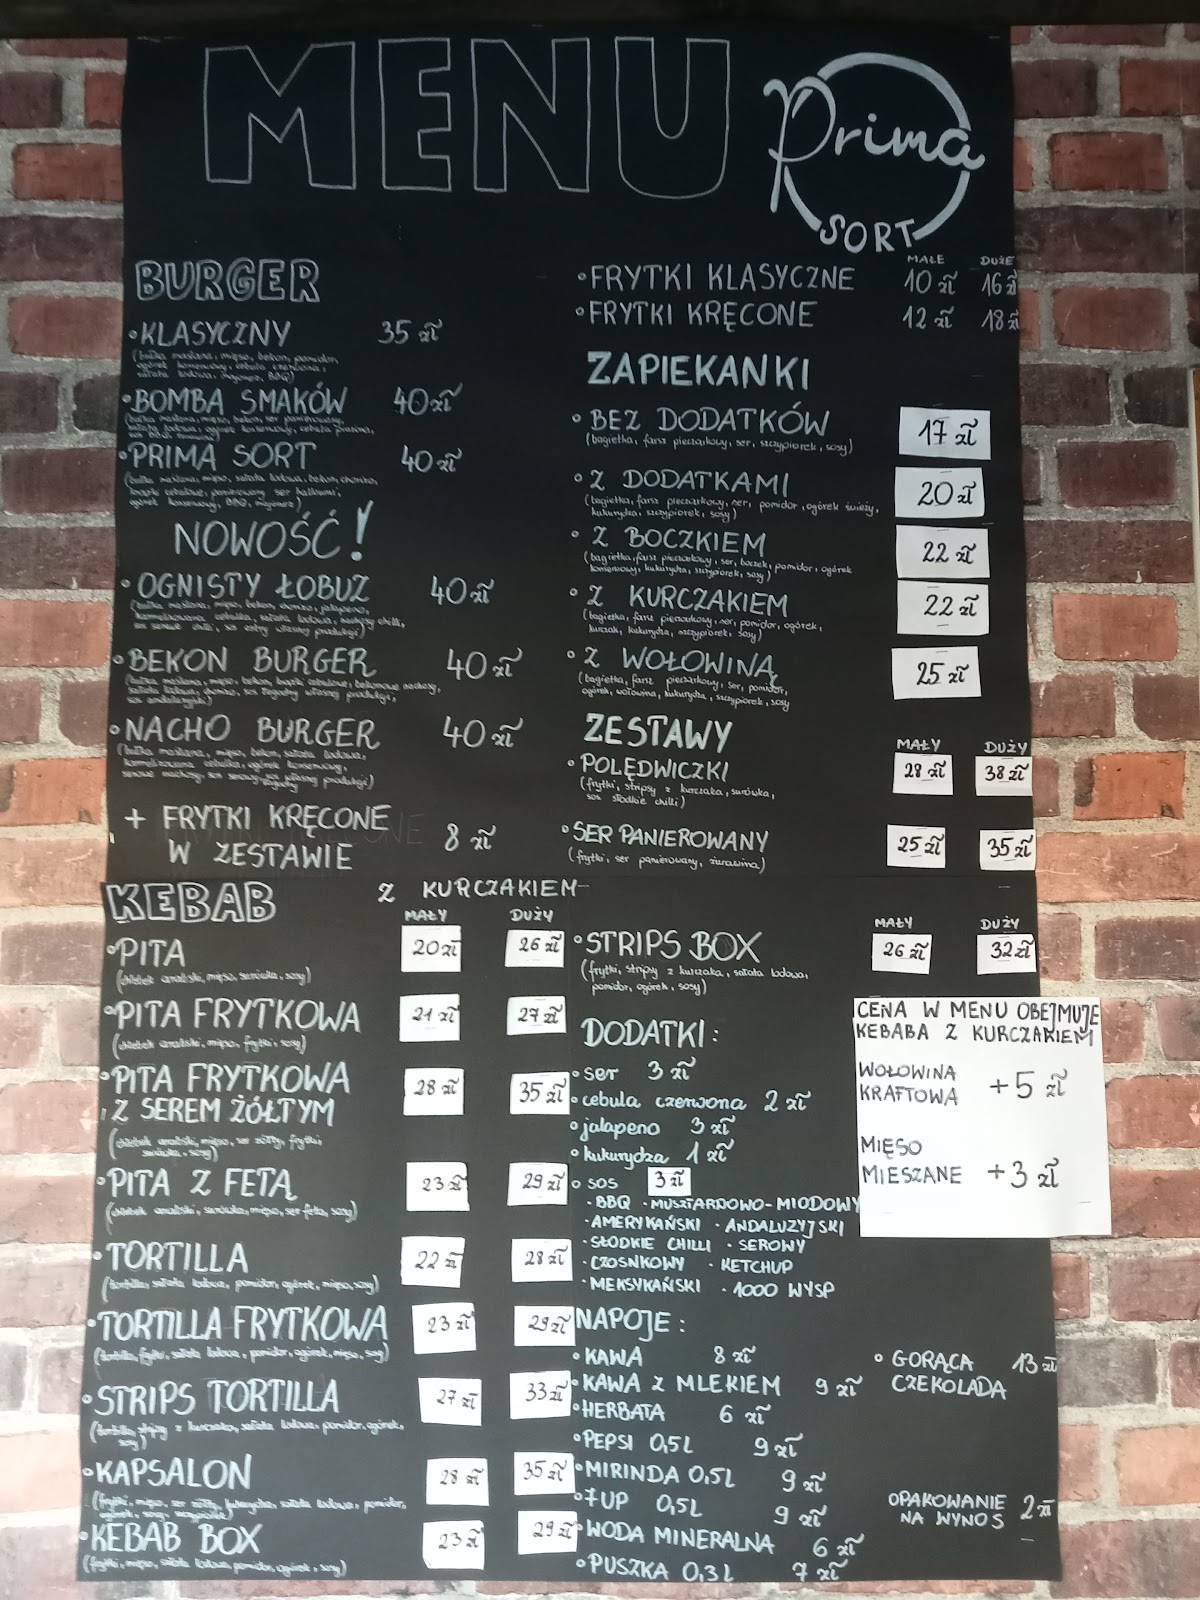 MENU
Prima
SORT
BURGER
• KLASYCZNY 35 zł
(bułka maślana, mięso, bekon, pomidor,
ogórek konserwowy, cebula czerwona,
sałata lodowa, majonez, BBQ)
• BOMBA SMAKÓW 40 zł
(bułka maślana, mięso, bekon, ser panierowany,
sałata lodowa, ogórek konserwowy, cebula prażona,
• PRIMA SORT 40 zł
(bułka maślana, mięso, sałata lodowa, bekon, chorizo,
krążki cebulowe, panierowany ser
ogórek konserwowy, BBQ, majonez)
NOWOŚĆ!
• OGNISTY ŁOBUZ 40 zł
(bułka maślana, mięso, bekon, chorizo, jalapeno,
karmelizowana cebulka, sałata lodowa, nachosy chilli,
sos serowe chilli, sos ostry własnej produkcji)
• BEKON BURGER 40 zł
(bułka maślana, mięso, bekon, krążki cebulowe, bekonowe nachosy,
sałata lodowa, chorizo, sos łagodny własnej produkcji,
sos andaluzyjski)
• NACHO BURGER 40 zł
(bułka maślana, mięso, bekon, sałata lodowa,
karmelizowana cebulka, ogórek konserwowy,
serowe nachosy, sos serowy, sos własnej produkcji)
łagodny
+ FRYTKI KRĘCONE
W ZESTAWIE 8 zł
MAŁE DUŻE
• FRYTKI KLASYCZNE 10 zł 16 zł
• FRYTKI KRĘCONE 12 zł 18 zł
ZAPIEKANKI
• BEZ DODATKÓW 17 zł
(bagietka, farsz pieczarkowy, ser, szczypiorek, sosy)
• Z DODATKAMI 20 zł
(bagietka, farsz pieczarkowy, ser, pomidor, ogórek świeży,
kukurydza, szczypiorek, sosy)
• Z BOCZKIEM 22 zł
(bagietka, farsz pieczarkowy, ser, boczek, pomidor, ogórek
konserwowy, kukurydza, szczypiorek, sosy)
• Z KURCZAKIEM 22 zł
(bagietka, farsz pieczarkowy, ser, pomidor, ogórek,
kurczak, kukurydza, szczypiorek, sosy)
• Z WOŁOWINĄ 25 zł
(bagietka, farsz pieczarkowy, ser, pomidor,
ogórek, wołowina, kukurydza, szczypiorek, sosy
ZESTAWY MAŁY DUŻY
• POLĘDWICZKI 28 zł 38 zł
(frytki, stripsy z kurczaka, surówka,
sos słodkie chilli)
• SER PANIEROWANY 25 zł 35 zł
(frytki, ser panierowany, żurawina)
KEBAB Z KURCZAKIEM
MAŁY DUŻY
• PITA 20 zł 26 zł
(chlebek arabski, mięso, surówka, sosy)
• PITA FRYTKOWA 21 zł 27 zł
(chlebek arabski, mięso, frytki, sosy)
• PITA FRYTKOWA
Z SEREM ŻÓŁTYM 28 zł 35 zł
(chlebek arabski, mięso, ser żółty, frytki,
surówka, sosy)
• PITA Z FETĄ 23 zł 29 zł
(chlebek arabski, surówka, mięso, ser feta, sosy)
• TORTILLA 22 zł 28 zł
(tortilla, sałata lodowa, pomidor, ogórek, mięso, sosy)
• TORTILLA FRYTKOWA 23 zł 29 zł
(tortilla, frytki, sałata lodowa, pomidor, ogórek, mięso, sosy)
• STRIPS TORTILLA 27 zł 33 zł
(tortilla, stripsy z kurczaka, sałata lodowa, pomidor, ogórek,
sosy)
• KAPSALON 28 zł 35 zł
(frytki, mięso, ser żółty, kukurydza, sałata lodowa, pomidor,
ogórek, sosy, szczypiorek)
• KEBAB BOX 23 zł 29 zł
(frytki, mięso, sałata lodowa, pomidor, ogórek, sosy)
MAŁY DUŻY
• STRIPS BOX 26 zł 32 zł
(frytki, stripsy z kurczaka, sałata lodowa,
pomidor, ogórek, sosy)
DODATKI:
• ser 3 zł
• cebula czerwona 2 zł
• jalapeno 3 zł
• kukurydza 1 zł
• sos 3 zł
· BBQ · MUSZTARDOWO-MIODOWY
· AMERYKAŃSKI · ANDALUZYJSKI
· SŁODKIE CHILLI · SEROWY
· CZOSNKOWY · KETCHUP
· MEKSYKAŃSKI · 1000 WYSP
CENA W MENU OBEJMUJE
KEBABA Z KURCZAKIEM
WOŁOWINA
KRAFTOWA +5 zł
MIĘSO
MIESZANE +3 zł
NAPOJE:
• KAWA 8 zł
• KAWA Z MLEKIEM 9 zł
• HERBATA 6 zł
• PEPSI 0,5L 9 zł
• MIRINDA 0,5L 9 zł
• 7UP 0,5L 9 zł
• WODA MINERALNA 6 zł
• PUSZKA 0,3L 7 zł
• GORĄCA 13 zł
CZEKOLADA
OPAKOWANIE
NA WYNOS 2 zł